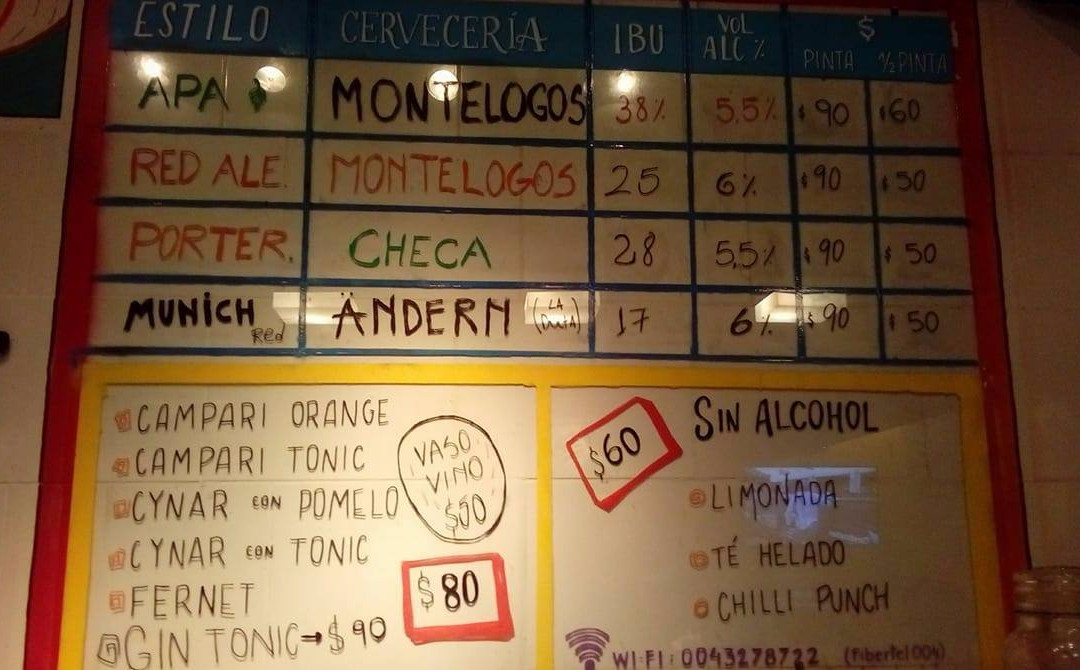 ESTILO CERVECERÍA IBU VOL ALC % $ PINTA ½ PINTA
APA MONTELOGOS 38% 5.5% $90 $60
RED ALE. MONTELOGOS 25 6% $90 $50
PORTER. CHECA 28 5,5% $90 $50
MUNiCH Red ÄNDERN (LA 17 6% $90 $50
CAMPARI ORANGE
CAMPARI TONIC
CYNAR CON POMELO
CYNAR CON TONIC
FERNET
GIN TONIC → $90
VASO
VINO
$50
$80
$60
SIN ALCOHOL
LIMONADA
TÉ HELADO
CHILLI PUNCH
WI-FI: 0043278722 (fibertel 004)